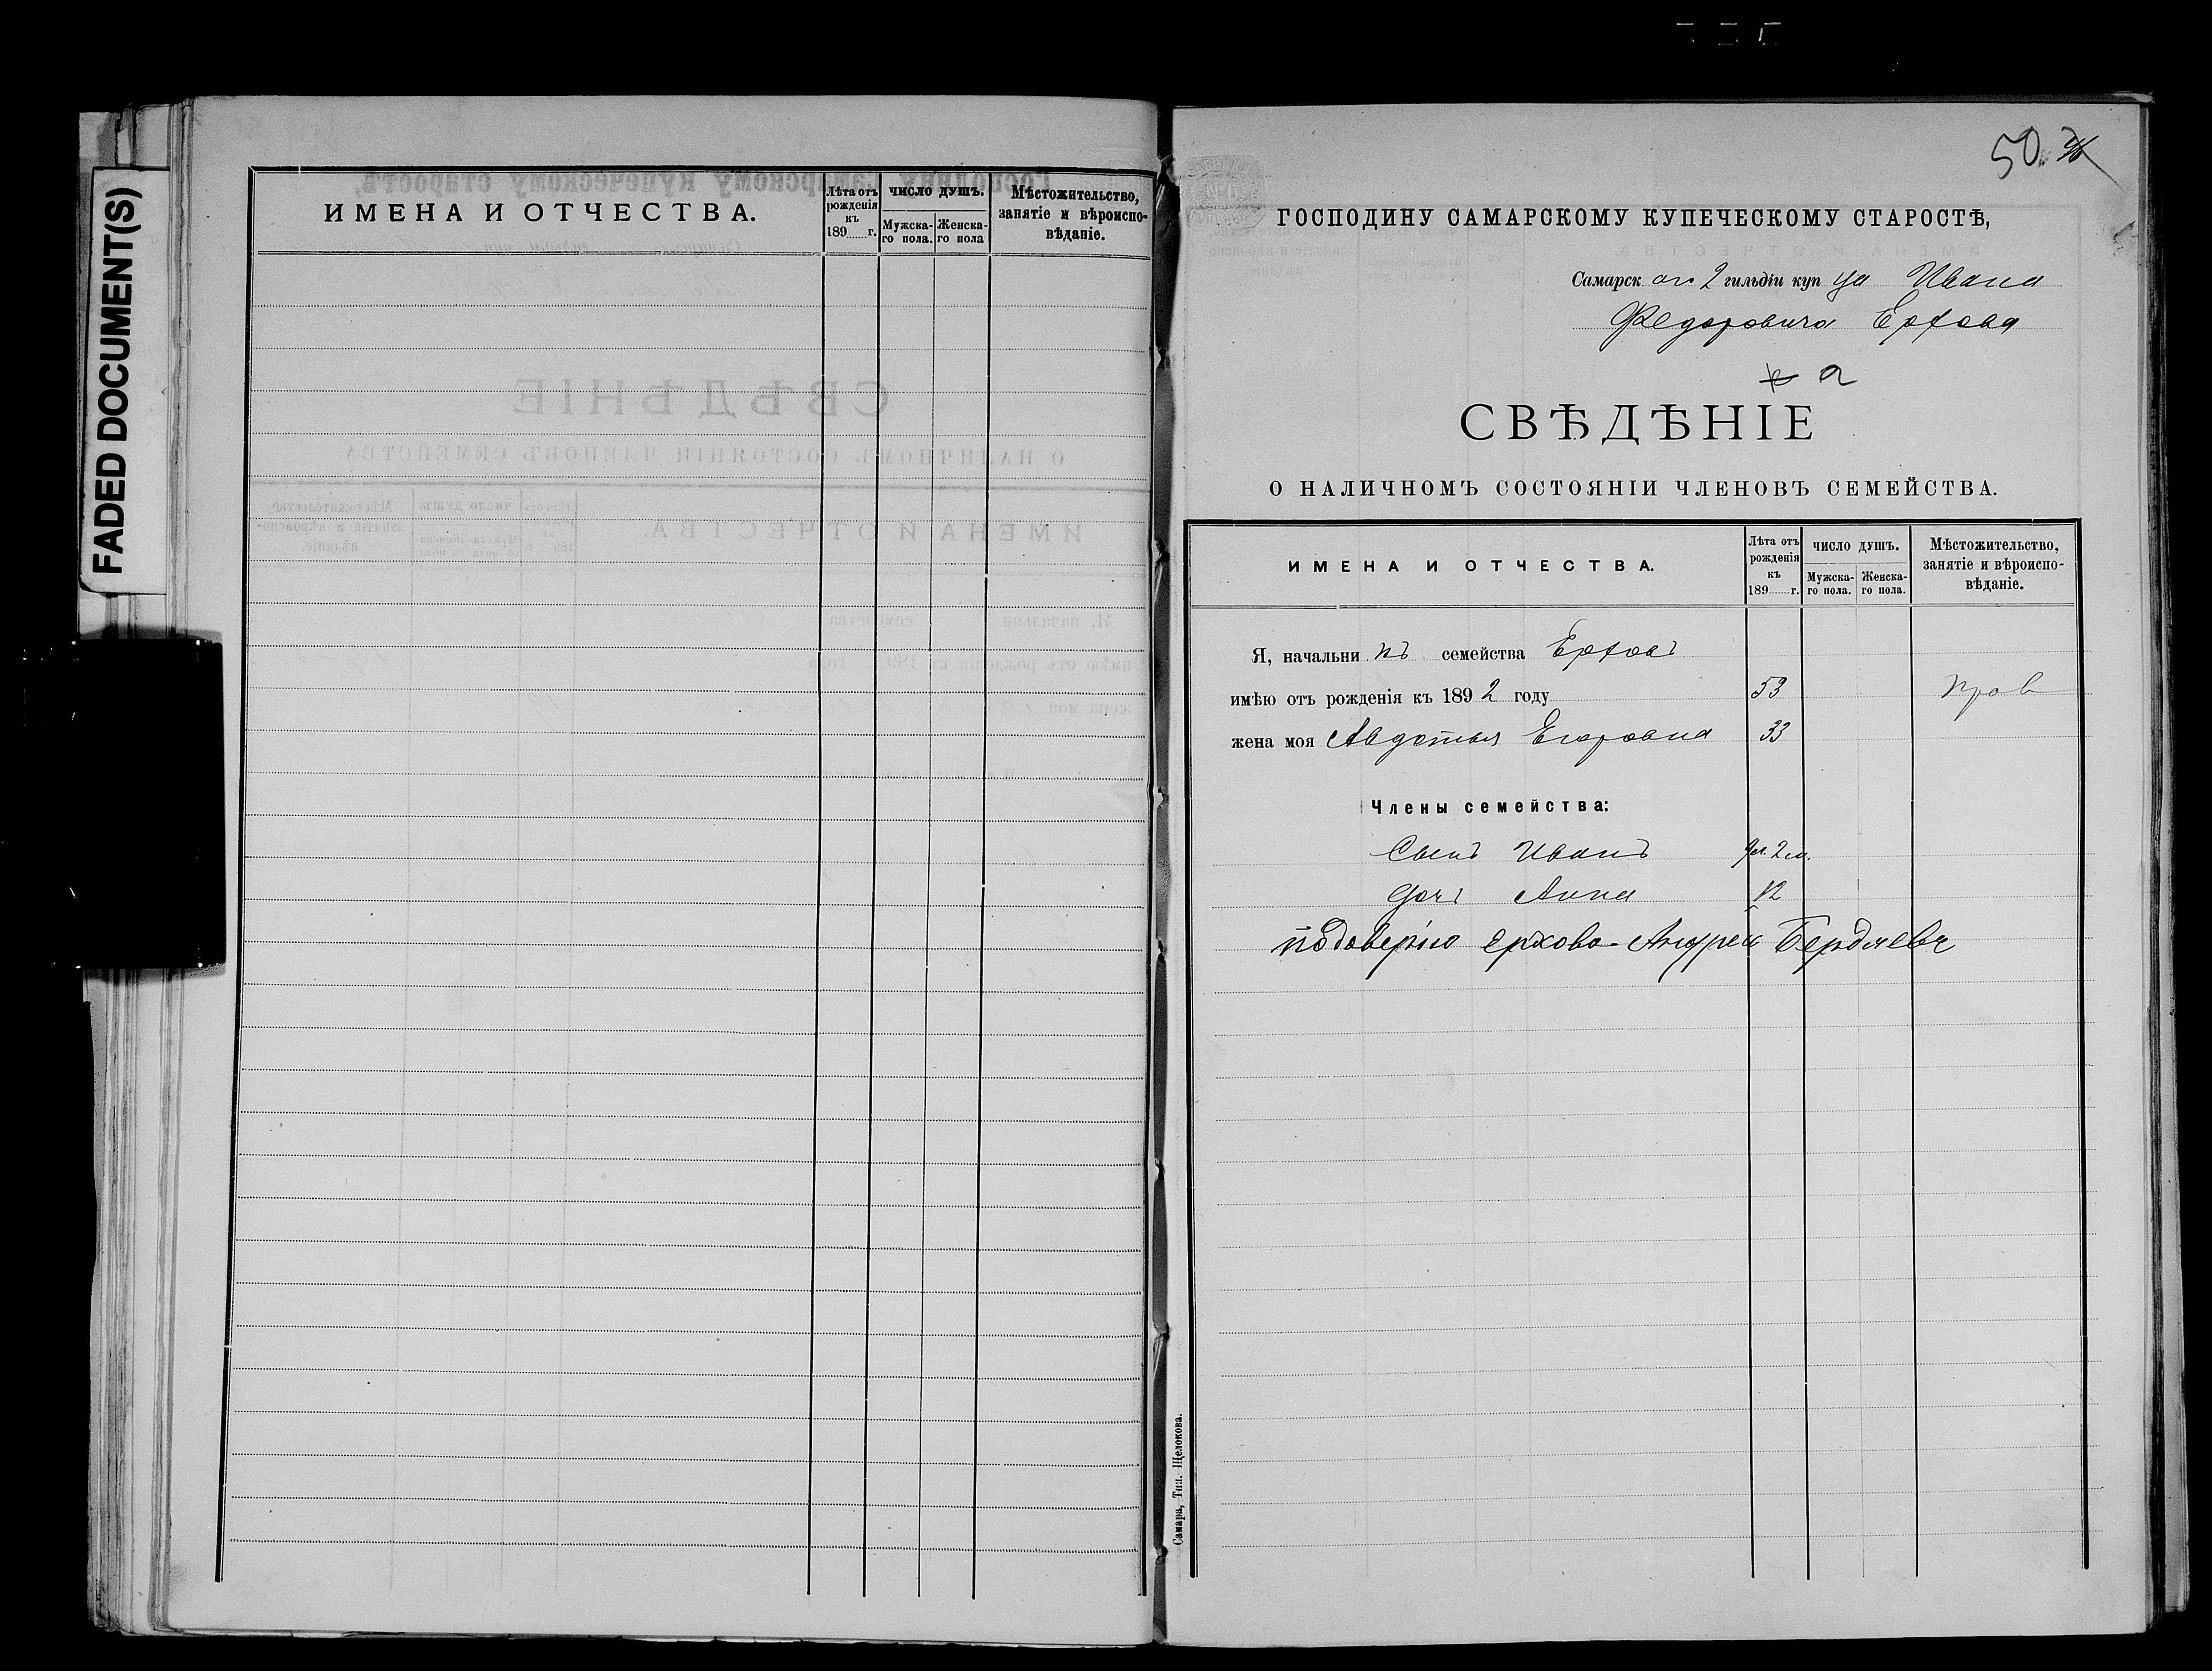 FADED DOCUMENT(S)
ИМЕНА И ОТЧЕСТВА.
Лѣта отъ рожденія къ 189 г.
ЧИСЛО ДУШЪ.
Мужска-го пола.
Женска-го пола
Мѣстожительство, занятіе и вѣроиспо-вѣданіе.
50.
ГОСПОДИНУ САМАРСКОМУ КУПЕЧЕСКОМУ СТАРОСТѢ,
Самарск аго 2 гильдіи куп ца Ивана
Федоровича Ерхова
СВѢДѢНІЕ
О НАЛИЧНОМЪ СОСТОЯНІИ ЧЛЕНОВЪ СЕМЕЙСТВА.
ИМЕНА И ОТЧЕСТВА.
Лѣта отъ рожденія къ 189 г.
ЧИСЛО ДУШЪ.
Мужска-го пола.
Женска-го пола.
Мѣстожительство, занятіе и вѣроиспо-вѣданіе.
Я, начальни къ семейства Ерховъ
имѣю отъ рожденія къ 189 2 году 53 прав
жена моя Авдотья Егоровна 33
Члены семейства:
Сынъ Иванъ 2 м.
Дочь Анна 12
подоверiю ерхова Андрей Бердяевъ
Самара, Тип. Щелокова.